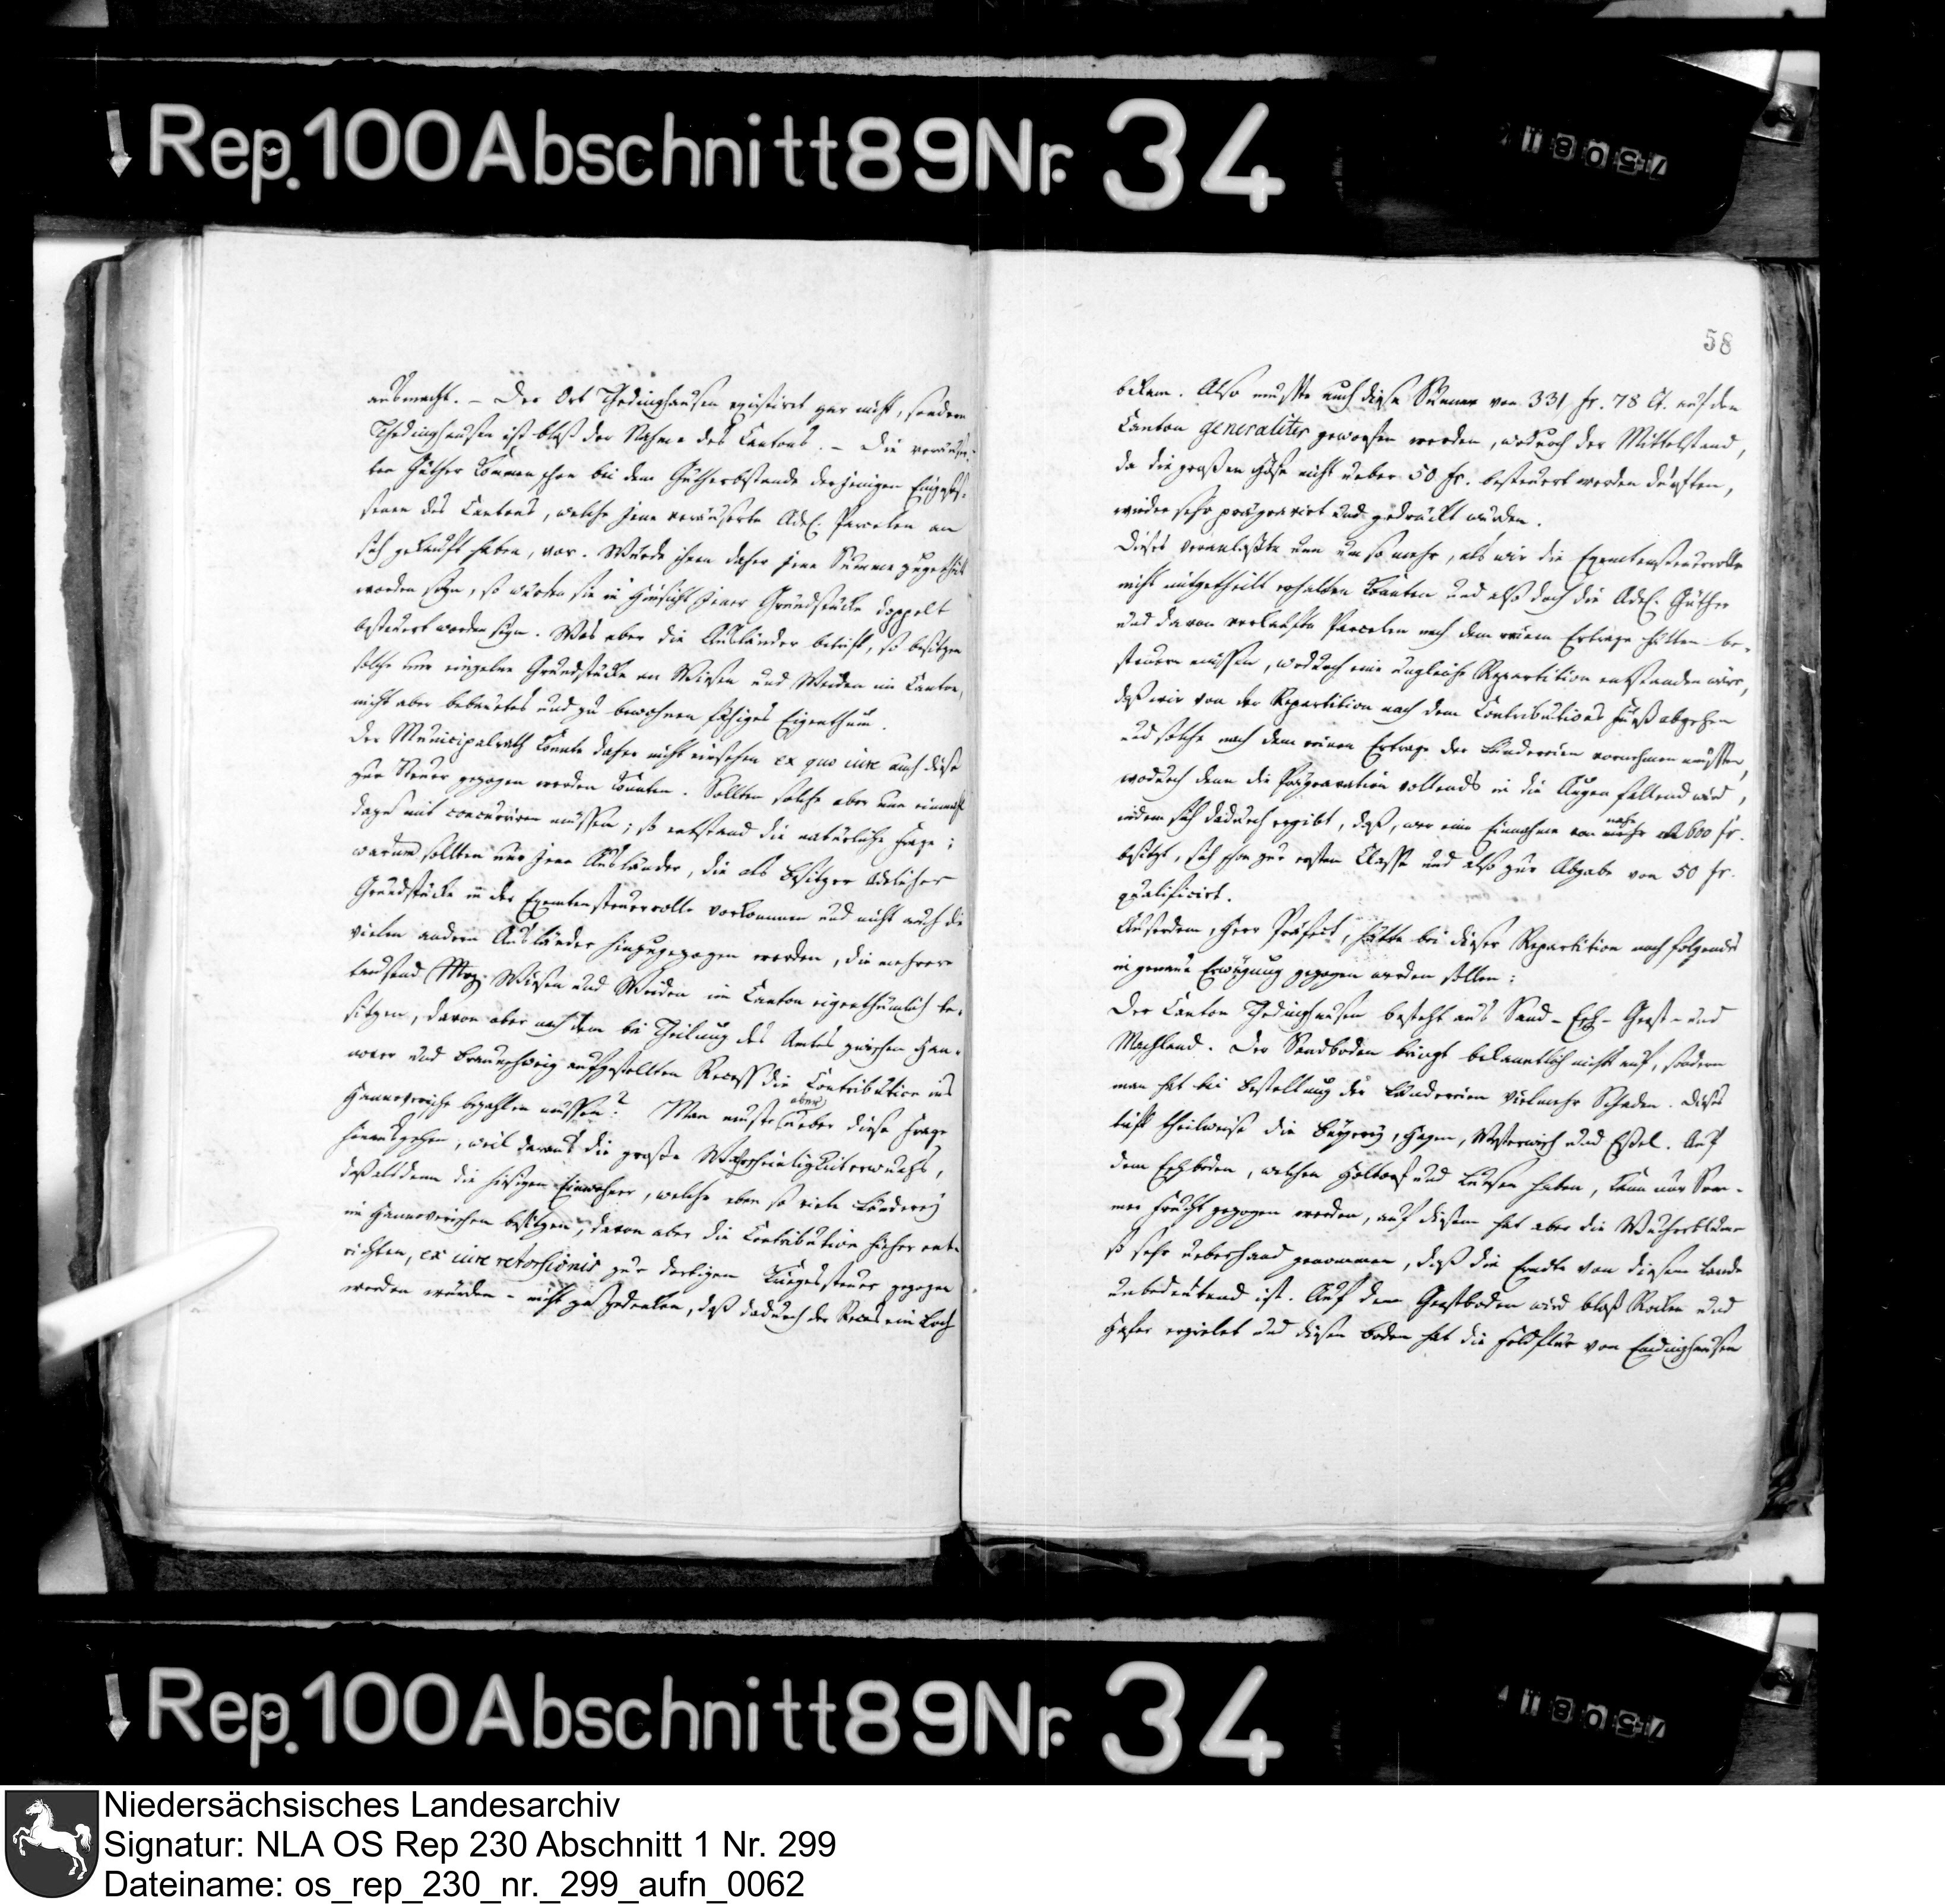 Rep. 100 Abschnitt 89 Nr. 34
ausmacht. – Der Ort Thedinghausen existiret gar nicht, sondern
Thedinghausen ist bloß der Nahme des Cantons. – Die veräußer-
ten Güther kommen schon bei dem Gutherbstande derjenigen Eingeses-
senen des Cantons, welche jene veräuserte Adel. Parcelen an
sich gekauft haben, vor. Würde ihnen daher jene Summe zugetheilt
worden seyn, so würden sie in Hinsicht jener Grundstücke doppelt
besteuert worden seyn. Was aber die Ausländer betrift, so besitzen
solche nur einzelne Grundstücke an Wiesen und Weiden im Canton,
nicht aber bebautes und zu bewohnen fähiges Eigenthum.
Der Municipalrath konnte daher nicht einsehen ex quo iure auch diese
zur Steuer gezogen werden könnten. Sollten solche aber nun einmahl
dazu mit concurriren müssen; so entstand die natürliche Frage;
warum sollten nur jene Ausländer, die als Besitzer Adelicher
Grundstücke in der Exemtensteuerrolle vorkommen und nicht auch die
vielen andern Ausländer hinzugezogen werden, die mehrere
tausend Mrg. Wiesen und Weiden im Canton eigenthümlich be-
sitzen, davon aber nach dem bei Theilung des Amtes zwischen Han-
nover und Braunschweig aufgestellten Recess die Contribution ins
Hannoversche bezahlen müssen? Man muste aber ueber diese Frage
hinausgehen, weil daraus die große Wahrscheinligkeit erwuchs,
daß alsdann die hiesigen Einwohner, welche eben so viele Länderey
im Hannoverschen besitzen, davon aber die Contribution hieher ent-
richten, ex iure retorsionis zur dortigen Kriegessteuer gezogen
werden würden – nicht zu gedenken, daß dadurch der Recess ein Loch
58
bekam. Also mußte auch diese Summe von 331 fr. 78 Ct. auf den
Canton generaliter geworfen werden, wodurch der Mittelstand,
da die großen Höfe nicht ueber 50 fr. besteuert werden durften,
wieder sehr prägravirt und gedrückt wurden.
Dieses veranlaßte nun um so mehr, als wir die Exemtensteuerrolle
nicht mitgetheilt erhalten konten und also doch die Adel. Güther
und davon verkaufte Parcelen nach dem reinen Ertrage hätten be-
steuern müssen, wodurch eine ungleiche Repartition entstanden wäre,
daß wir von der Repartition nach dem Contributions Fuß abgehen
und solche nach dem reinen Ertrage der Ländereien vornehmen mußten,
wodurch denn die Prägravation vollends in die Augen fallend wird,
indem sich dadurch ergibt, daß, wer eine Einnahme von nahe 600 fr.
besitzt, sich schon zur ersten Classe und also zur Abgabe von 50 fr.
qualificirt.
Außerdem, Herr Präfect, hätte bei dieser Repartition noch folgendes
in genaue Erwägung gezogen werden sollen:
Der Canton Thedinghausen besteht aus Sand- Esch- Geest- und
Marschland. Der Sandboden bringt bekanntlich nichts auf, sondern
man hat bei Bestellung der Ländereien vielmehr Schaden. Dieses
trift theilweise die Beyerey, Hagen, Westerwisch und Eißel. Auf
dem Eschboden, welchen Holtorf und Lunsen haben, kann nur Som-
mer Frucht gezogen werden, auf diesem hat aber die Wucherblume
so sehr ueberhand genommen, daß die Erndte von diesem Lande
unbedeutend ist. Auf dem Geestboden wird bloß Rocken und
Hafer erzielet und diesen Boden hat die Feldflur von Emtinghausen
Rep. 100 Abschnitt 89 Nr. 34
Niedersächsisches Landesarchiv
Signatur: NLA OS Rep 230 Abschnitt 1 Nr. 299
Dateiname: os_rep_230_nr._299_aufn_0062